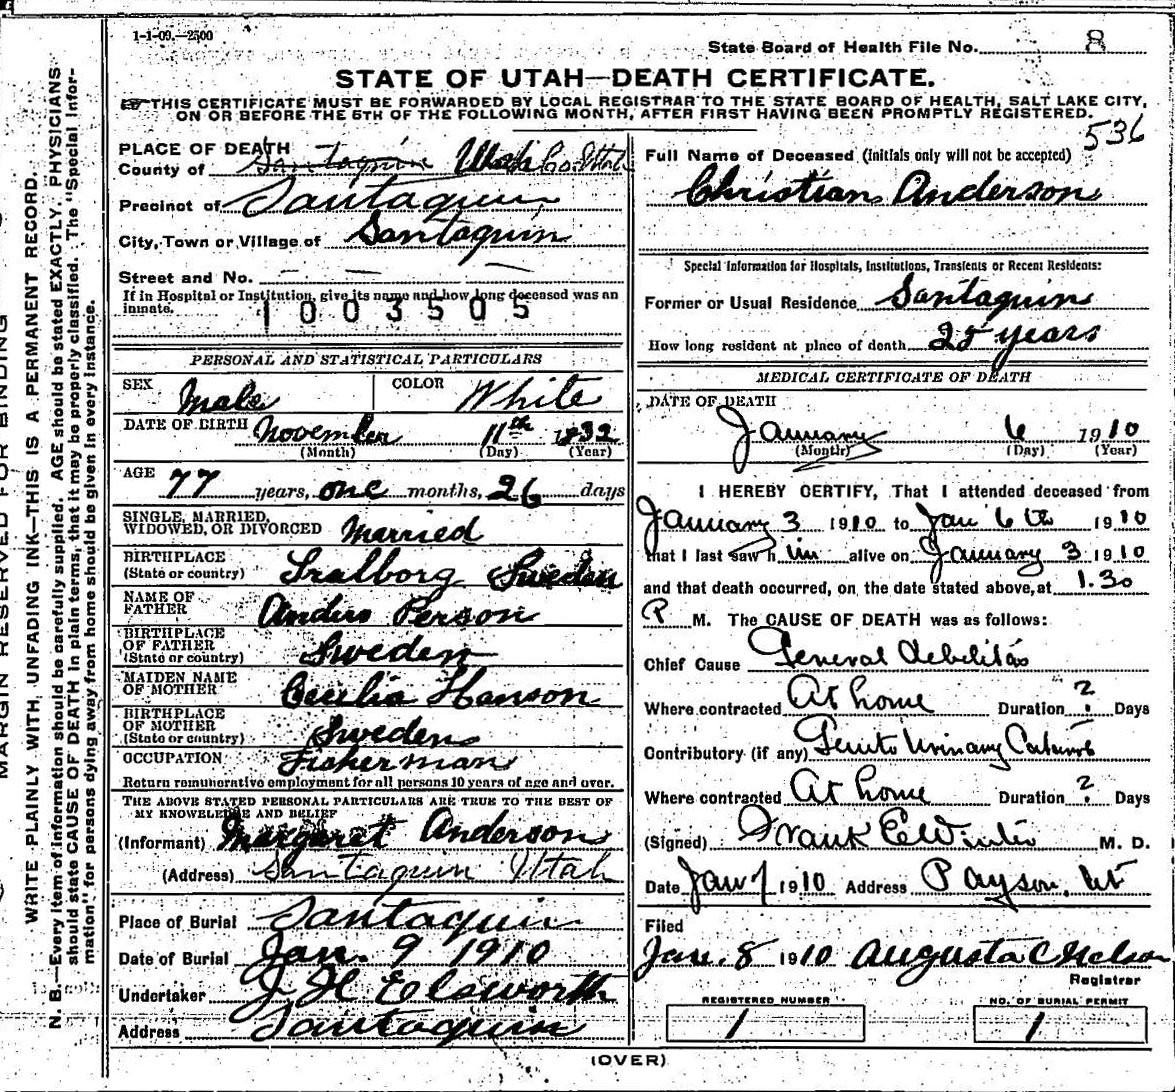 1-1-09.—2500
State Board of Health File No. 8
STATE OF UTAH—DEATH CERTIFICATE.
THIS CERTIFICATE MUST BE FORWARDED BY LOCAL REGISTRAR TO THE STATE BOARD OF HEALTH, SALT LAKE CITY,
ON OR BEFORE THE 5TH OF THE FOLLOWING MONTH, AFTER FIRST HAVING BEEN PROMPTLY REGISTERED.
536
PLACE OF DEATH
County of Santaquin Utah Co. Utah
Precinct of Santaquin
City, Town or Village of Santaquin
Street and No. — — —
If in Hospital or Institution, give its name and how long deceased was an
inmate.
1003505
PERSONAL AND STATISTICAL PARTICULARS
SEX Male COLOR White
DATE OF BIRTH November 11th 1832
(Month) (Day) (Year)
AGE 77 years, one months, 26 days
SINGLE, MARRIED,
WIDOWED, OR DIVORCED Married
BIRTHPLACE
(State or country) Sweden
NAME OF
FATHER Anders Person
BIRTHPLACE
OF FATHER
(State or country) Sweden
MAIDEN NAME
OF MOTHER Cecilia Hanson
BIRTHPLACE
OF MOTHER
(State or country) Sweden
OCCUPATION Fisherman
Return remunerative employment for all persons 10 years of age and over.
THE ABOVE STATED PERSONAL PARTICULARS ARE TRUE TO THE BEST OF
MY KNOWELEDGE AND BELIEF
(Informant) Margaret Anderson
(Address) Santaquin Utah
Place of Burial Santaquin
Date of Burial Jan. 9 1910
Undertaker J H Elsworth
Address Santaquin
Full Name of Deceased (initials only will not be accepted)
Christian Anderson
Special Information for Hospitals, Institutions, Transients or Recent Residents:
Former or Usual Residence Santaquin
How long resident at place of death 25 years
MEDICAL CERTIFICATE OF DEATH
DATE OF DEATH
January 6 1910
(Month) (Day) (Year)
I HEREBY CERTIFY, That I attended deceased from
January 3 1910 to Jan 6th 1910
that I last saw him alive on January 3 1910
and that death occurred, on the date stated above, at 1.30
P M. The CAUSE OF DEATH was as follows:
Chief Cause General
Where contracted At home Duration ? Days
Contributory (if any) Genito Urinary
Where contracted At home Duration ? Days
(Signed) Frank E Winter M. D.
Date Jan 7 1910 Address Payson, Ut
Filed
Jan. 8 1910 Augusta C Nelson
Registrar
REGISTERED NUMBER
1
NO. OF BURIAL PERMIT
1
(OVER)
MARGIN RESERVED FOR BINDING
WRITE PLAINLY WITH UNFADING INK—THIS IS A PERMANENT RECORD.
N. B.—Every item of information should be carefully supplied. AGE should be stated EXACTLY. PHYSICIANS
should state CAUSE OF DEATH in plain terms, that it may be properly classified. The "Special Infor-
mation" for persons dying away from home should be given in every instance.